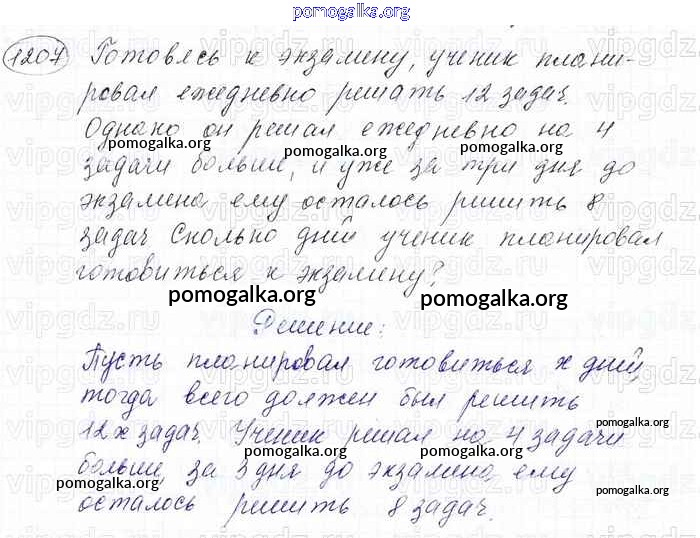 pomogalka.org
1207 Готовясь к экзамену, ученик плани-
ровал ежедневно решать 12 задач.
Однако он решал ежедневно на 4
pomogalka.org pomogalka.org
задачи больше, и уже за три дня до
экзамена ему осталось решить 8
pomogalka.org pomogalka.org
задач Сколько дней ученик планировал
готовиться к экзамену?
pomogalka.org pomogalka.org
Решение:
Пусть планировал готовиться x дней,
тогда всего должен был решить
pomogalka.org
12x задач. Ученик решал на 4 задачи
pomogalka.org pomogalka.org
больше, за 3 дня до экзамена ему
осталось решить 8 задач.
pomogalka.org pomogalka.org